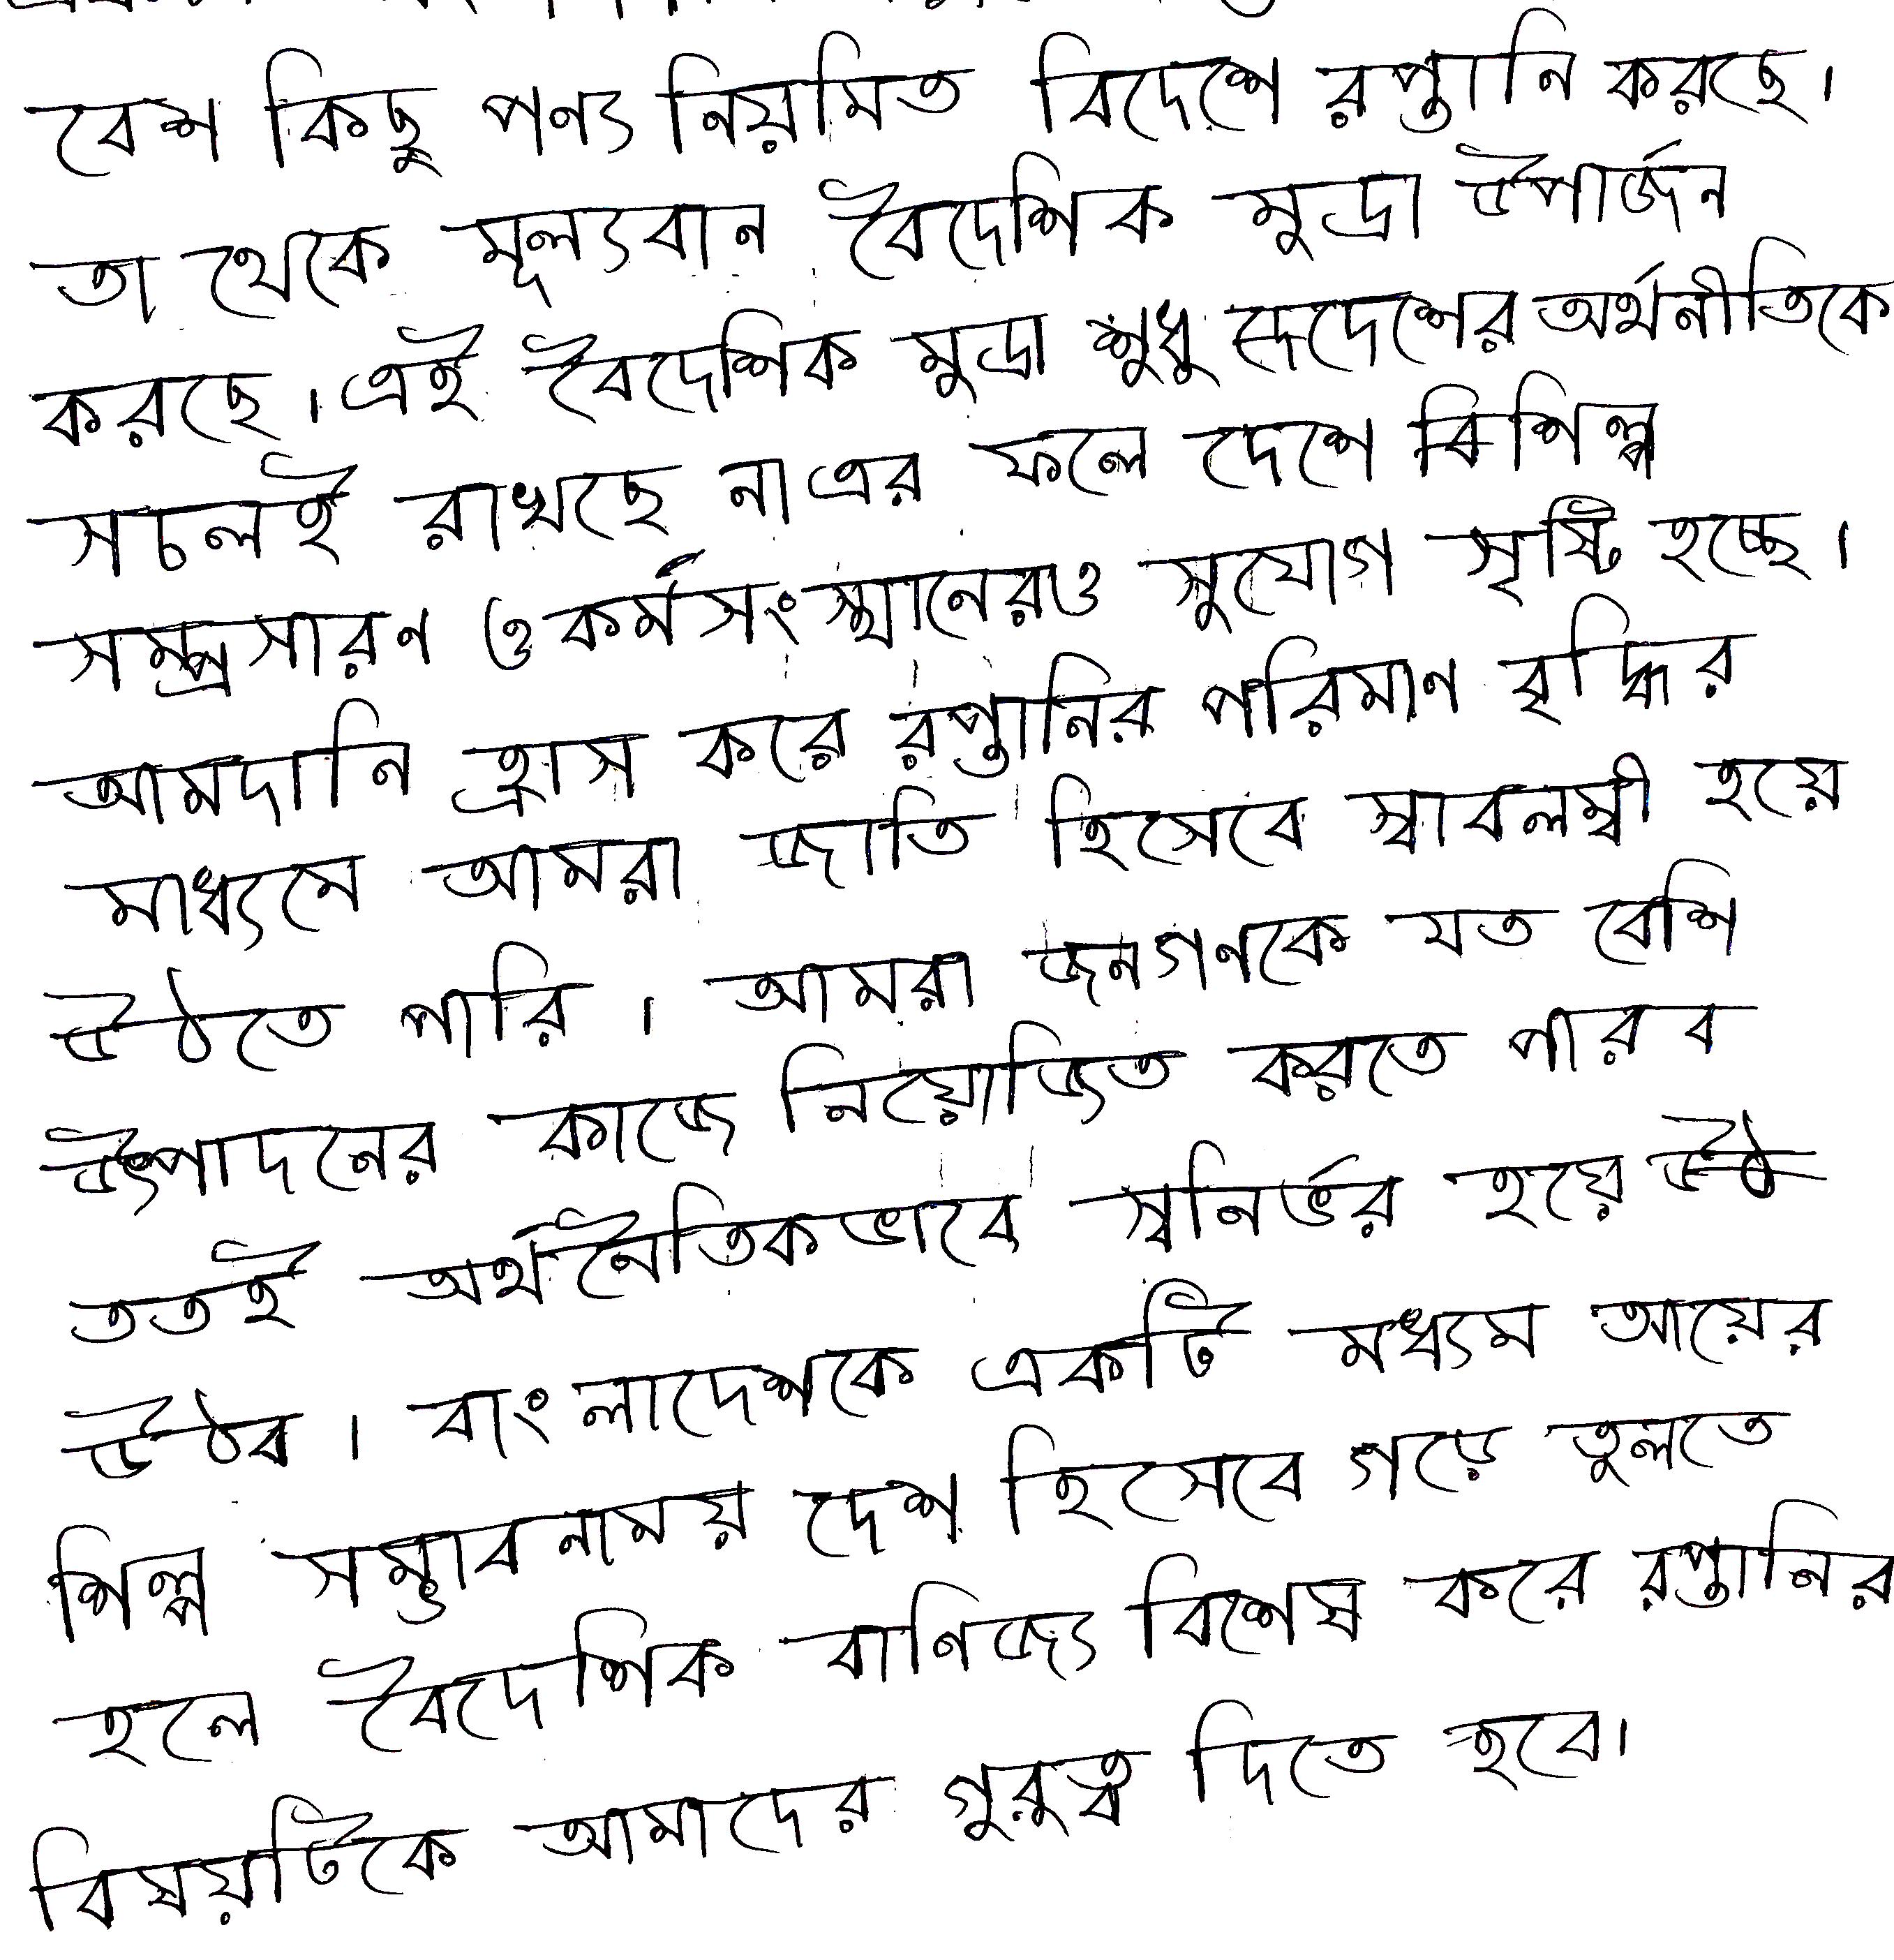 বেশ কিছু পন্য নিয়মিত বিদেশে রপ্তানি করছে।
তা থেকে মূল্যবান বৈদেশিক মুদ্রা উপার্জন
করছে। এই বৈদেশিক মুদ্রা শুধু দেশের অর্থনীতিকে
সচলই রাখছে না এর ফলে দেশে শিল্প
সম্প্রসারন ও কর্মসংস্থানেরও সুযোগ সৃষ্টি হচ্ছে।
আমদানি হ্রাস করে রপ্তানির পরিমান বৃদ্ধির
মাধ্যমে আমরা জাতি হিসেবে স্বাবলম্বী হয়ে
উঠতে পারি। আমরা জনগনকে যত বেশি
উৎপাদনের কাজে নিয়োজিত করতে পারব
ততই অর্থনৈতিকভাবে স্বনির্ভর হয়ে
উঠব। বাংলাদেশকে একটি মধ্যম আয়ের
শিল্প সম্ভাবনাময় দেশ হিসেবে গড়ে তুলতে
হলে বৈদেশিক বানিজ্য বিশেষ করে রপ্তানির
বিষয়টিকে আমাদের গুরুত্ব দিতে হবে।